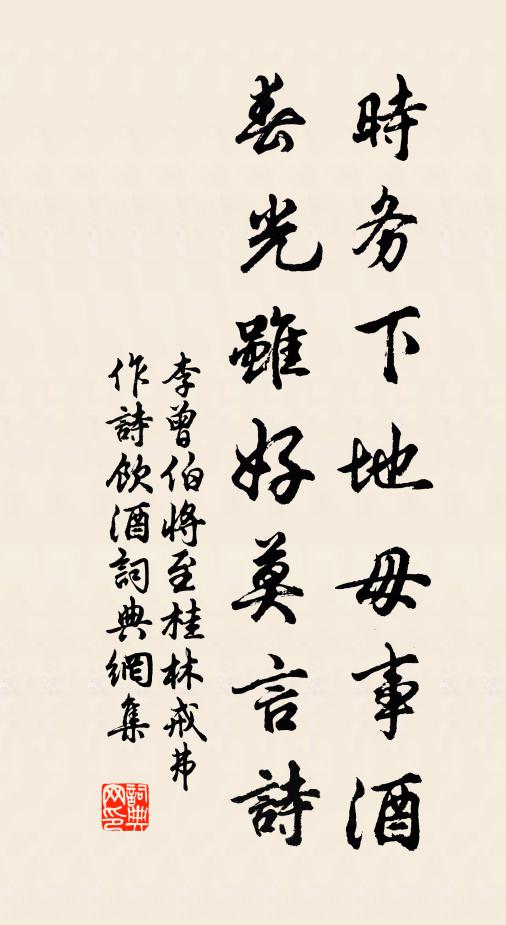 時务下地毋事酒
春光雖好莫言詩
李曾伯將至桂林戒弗
作詩飲酒詞典網集
詞典
网印